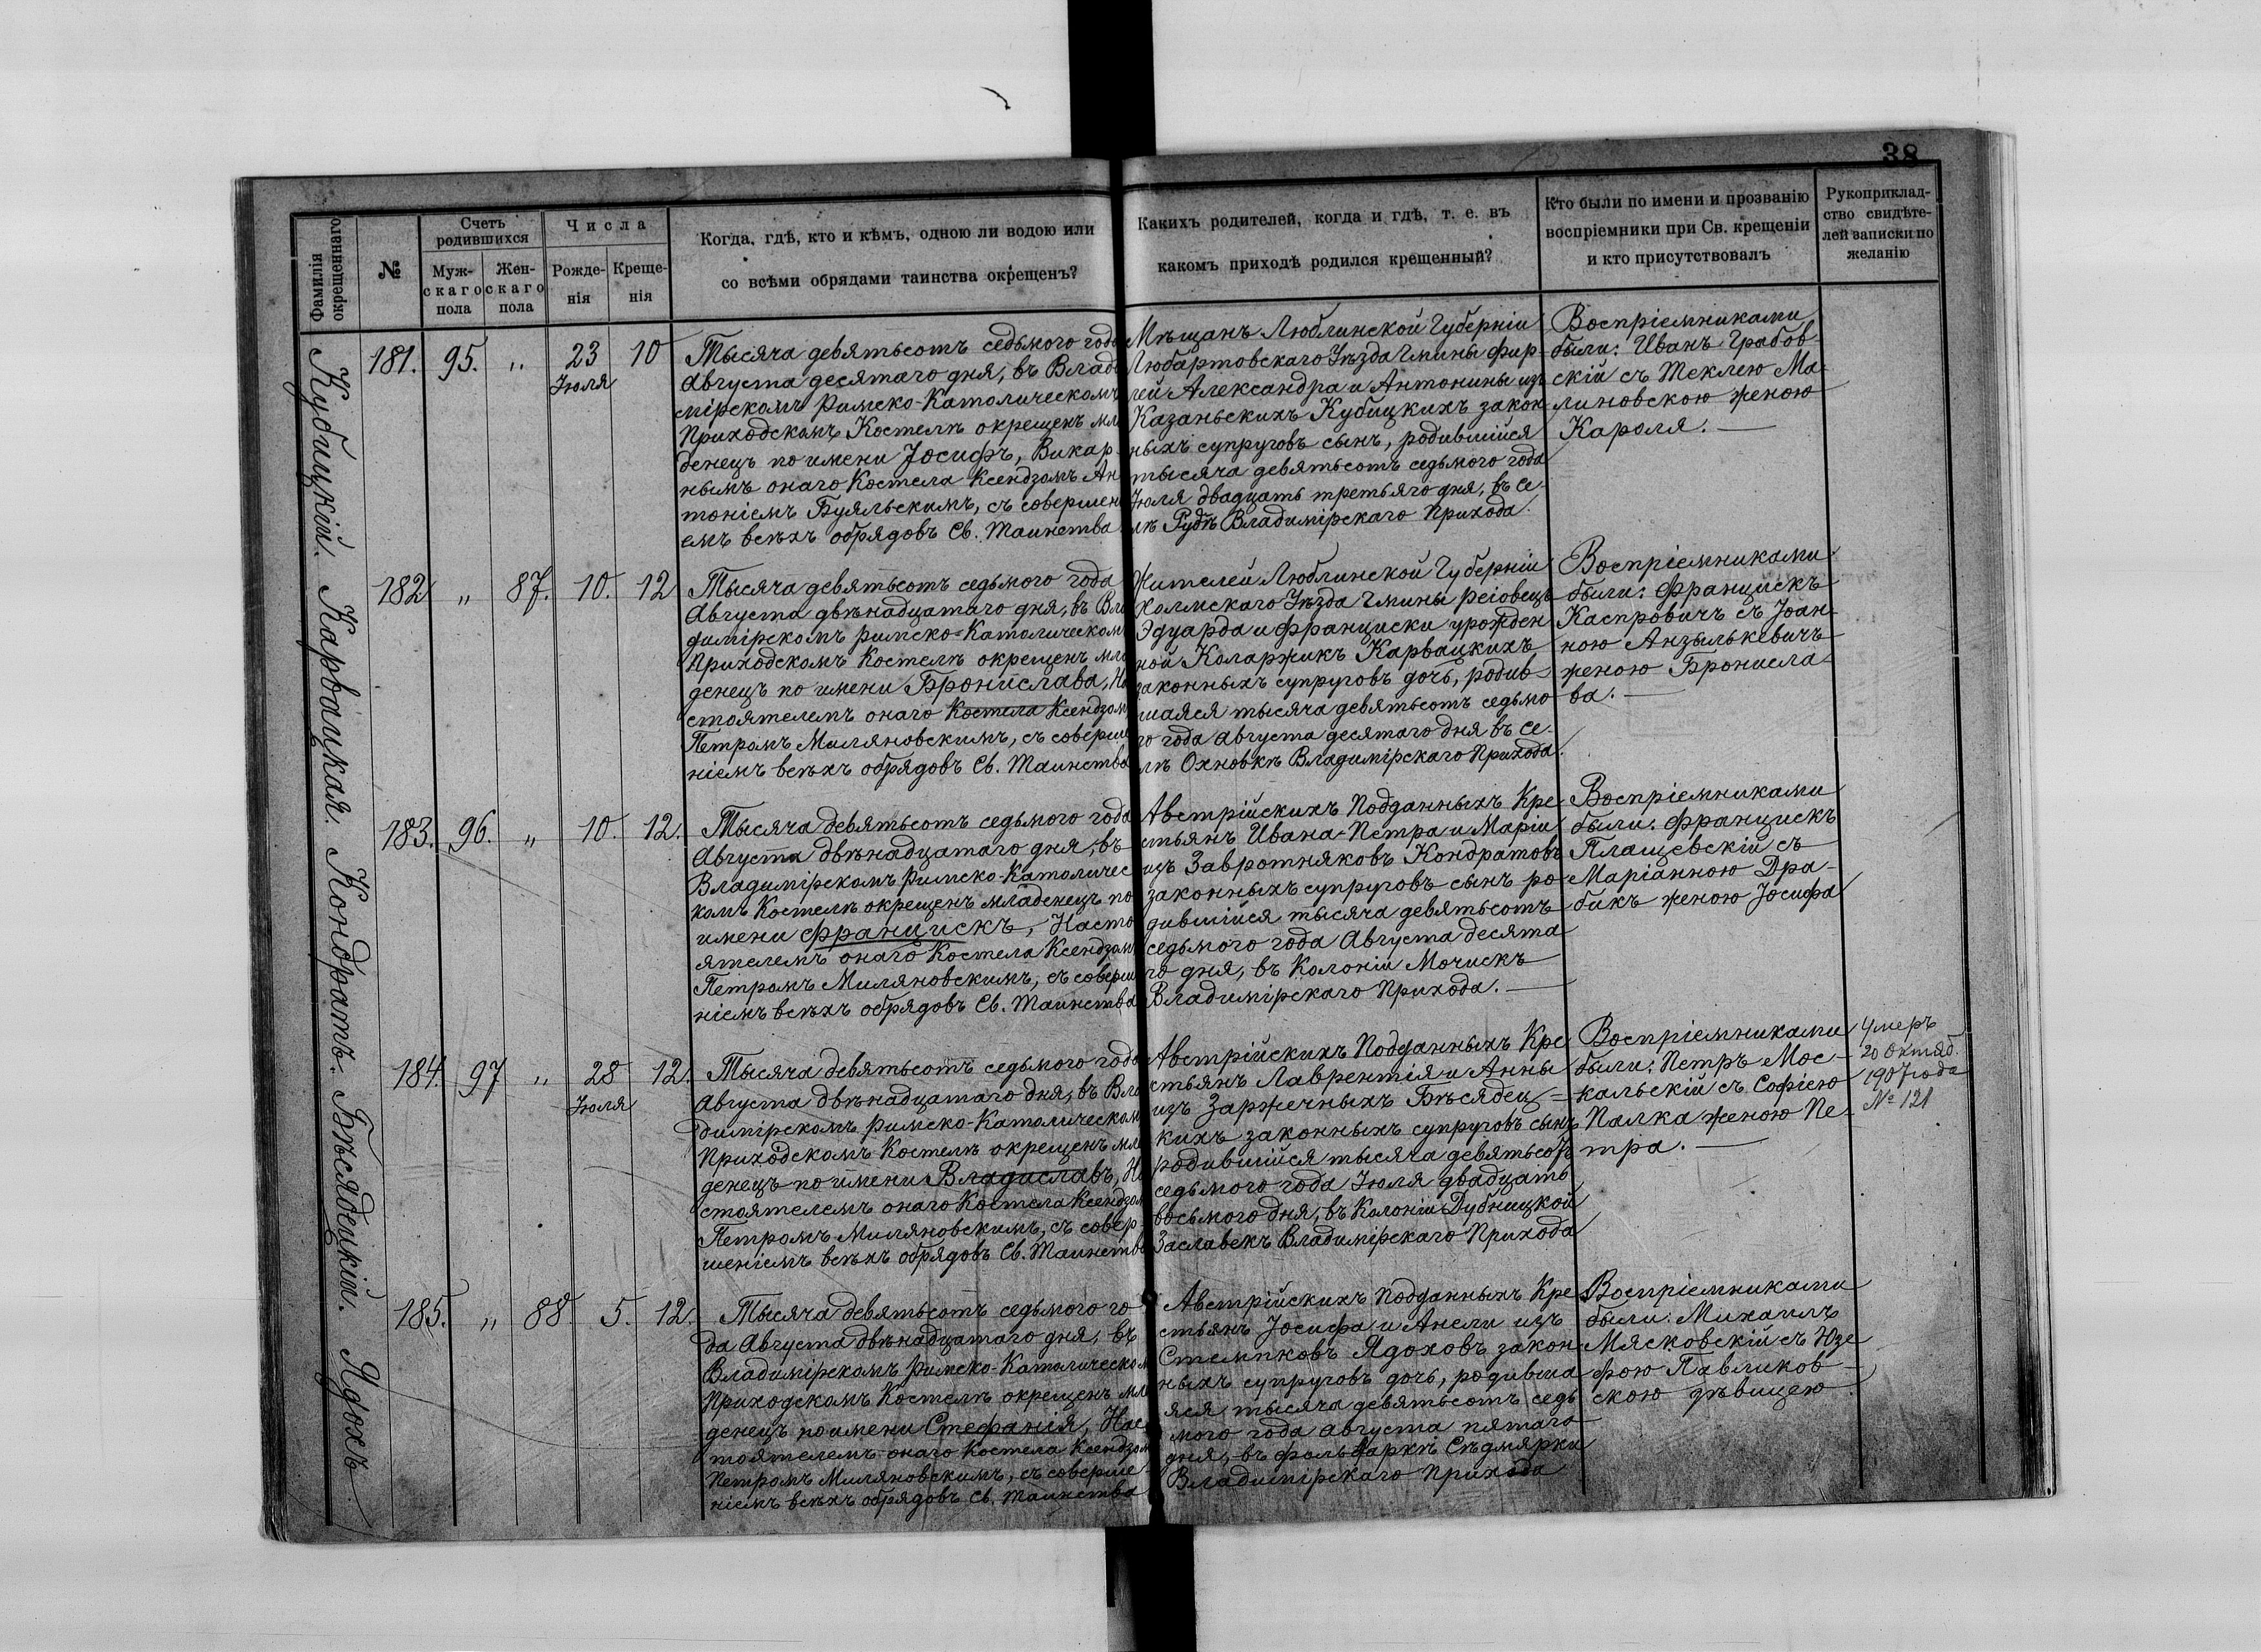 38
Фамилія
окрещеннаго
№
Счетъ
родившихся
Муж-
скаго
пола
Жен-
скаго
пола
Числа
Рожде-
нія
Креще-
нія
Когда, гдѣ, кто и кѣмъ, одною ли водою или
со всѣми обрядами таинства окрещенъ?
Какихъ родителей, когда и гдѣ, т. е. въ
какомъ приходѣ родился крещенный?
Кто были по имени и прозванію
воспріемники при Св. крещеніи
и кто присутствовалъ
Рукоприклад-
ство свидѣте-
лей записки по
желанію
Кубицкій.
181. 95. „ 23 10
Іюля
Тысяча девятьсотъ седьмого года
Августа десятаго дня, въ Влади
мірскомъ Римско-Католическомъ
Приходскомъ Костелѣ окрещенъ мла
денецъ по имени Іосифъ, Викар-
нымъ онаго Костела Ксендзомъ Ан
тоніемъ Буяльскимъ, съ совершені
емъ всѣхъ обрядовъ Св. Таинства
Мѣщанъ Люблинской Губерніи
Любартовскаго Уѣзда Гмины Фир-
лей Александра и Антонины изъ
Казаньскихъ Кубицкихъ закон
ныхъ супруговъ сынъ, родившійся
тысяча девятьсотъ седьмого года
Іюля двадцать третьяго дня, въ се-
лѣ Рудѣ Владимірскаго Прихода.
Воспріемниками
были: Иванъ Грабов-
скій съ Теклею Ма-
линовскою женою
Кароля. —
Карвацкая.
182 „ 87. 10. 12
Тысяча девятьсотъ седьмого года
Августа двѣнадцатаго дня, въ Вла
димірскомъ Римско-Католическомъ
Приходскомъ Костелѣ окрещенъ мла
денецъ по имени Бронислава, На
стоятелемъ онаго Костела Ксендзомъ
Петромъ Миляновскимъ, съ соверше
ніемъ всѣхъ обрядовъ Св. Таинства
Жителей Люблинской Губерніи
Холмскаго Уѣзда Гмины Реіовецъ
Эдуарда и Франциски урожден
ной Коларжикъ Карвацкихъ
законныхъ супруговъ дочь, родив-
шаяся тысяча девятьсотъ седьмо
го года Августа десятаго дня въ се-
лѣ Охновкѣ Владимірскаго Прихода.
Воспріемниками
были: Францискъ
Каспровичъ съ Іоан-
ною Анзылькевичъ
женою Бронисла-
ва. —
Кондратъ.
183. 96. „ 10. 12.
Тысяча девятьсотъ седьмого года
Августа двѣнадцатаго дня, въ
Владимірскомъ Римско-Католичес
комъ Костелѣ окрещенъ младенецъ по
имени Францискъ, Насто
ятелемъ онаго Костела Ксендзомъ
Петромъ Миляновскимъ, съ соверше
ніемъ всѣхъ обрядовъ Св. Таинства
Австрійскихъ Подданныхъ Кре-
стьянъ Ивана-Петра и Маріи
изъ Завротняковъ Кондратовъ
законныхъ супруговъ сынъ ро-
дившійся тысяча девятьсотъ
седьмого года Августа десята
го дня, въ Колоніи Мочискъ
Владимірскаго Прихода. —
Воспріемниками
были: Францискъ
Плащевскій съ
Маріанною Дра-
бикъ женою Іосифа
Бѣсядецкій.
184. 97 „ 28 12.
Іюля
Тысяча девятьсотъ седьмого года
Августа двѣнадцатаго дня, въ Вла
димірскомъ Римско-Католическомъ
Приходскомъ Костелѣ окрещенъ мла
денецъ по имени Владиславъ, На
стоятелемъ онаго Костела Ксендзом
Петромъ Миляновскимъ, съ совер-
шеніемъ всѣхъ обрядовъ Св. Таинства
Австрійскихъ Подданныхъ Кре
стьянъ Лаврентія и Анны
изъ Заржечныхъ Бѣсядец-
кихъ законныхъ супруговъ сынъ
родившійся тысяча девятьсотъ
седьмого года Іюля двадцать
восьмого дня, въ Колоніи Дубницкой
Заславекъ Владимірскаго Прихода
Воспріемниками
были: Петръ Мос-
кальскій съ Софіею
Палка женою Пе-
тра. —
Умеръ
20 Октяб.
1907 года
№ 121
Ядохъ
185. „ 88. 5. 12.
Тысяча девятьсотъ седьмого го
да Августа двѣнадцатаго дня, въ
Владимірскомъ Римско-Католическом
Приходскомъ Костелѣ окрещенъ мла
денецъ по имени Стефанія, Нас
тоятелемъ онаго Костела Ксендзом
Петромъ Миляновскимъ, съ соверше
ніемъ всѣхъ обрядовъ Св. Таинства
Австрійскихъ Подданныхъ Кре
стьянъ Іосифа и Анели изъ
Стемпковъ Ядоховъ закон
ныхъ супруговъ дочь, родивша
яся тысяча девятьсотъ седь
мого года Августа пятаго
дня, въ Фольваркѣ Сѣдмярки
Владимірскаго Прихода
Воспріемниками
были: Михаилъ
Мясковскій съ Юзе
фою Павликов-
скою дѣвицею